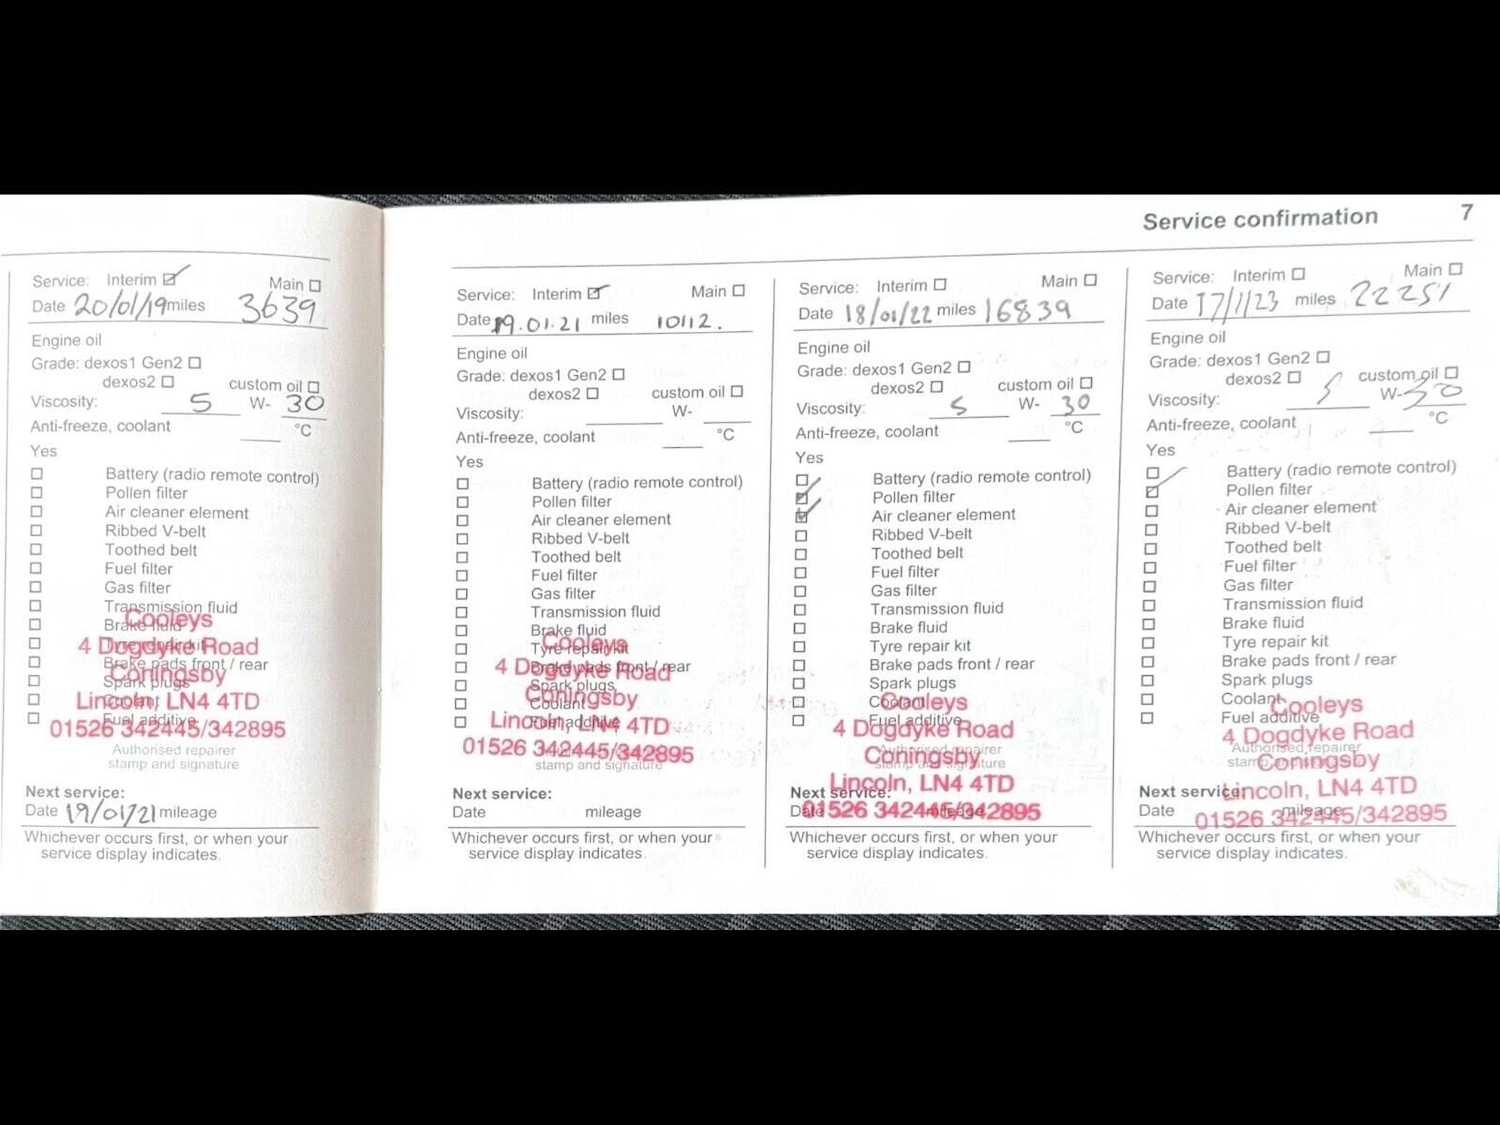 Service confirmation 7
Service: Interim ☑ Main ☐
Date 20/01/19 miles 3639
Engine oil
Grade: dexos1 Gen2 ☐
dexos2 ☐ custom oil ☐
Viscosity: 5 W- 30
Anti-freeze, coolant ____ °C
Yes
☐ Battery (radio remote control)
☐ Pollen filter
☐ Air cleaner element
☐ Ribbed V-belt
☐ Toothed belt
☐ Fuel filter
☐ Gas filter
☐ Transmission fluid
☐ Brake fluid
☐ Tyre repair kit
☐ Brake pads front / rear
☐ Spark plugs
☐ Coolant
☐ Fuel additive
Cooleys
4 Dogdyke Road
Coningsby
Lincoln, LN4 4TD
01526 342445/342895
Authorised repairer
stamp and signature
Next service:
Date 19/01/21 mileage
Whichever occurs first, or when your
service display indicates.
Service: Interim ☑ Main ☐
Date 19.01.21 miles 10112.
Engine oil
Grade: dexos1 Gen2 ☐
dexos2 ☐ custom oil ☐
Viscosity: ____ W- ____
Anti-freeze, coolant ____ °C
Yes
☐ Battery (radio remote control)
☐ Pollen filter
☐ Air cleaner element
☐ Ribbed V-belt
☐ Toothed belt
☐ Fuel filter
☐ Gas filter
☐ Transmission fluid
☐ Brake fluid
☐ Tyre repair kit
☐ Brake pads front / rear
☐ Spark plugs
☐ Coolant
☐ Fuel additive
Cooleys
4 Dogdyke Road
Coningsby
Lincoln, LN4 4TD
01526 342445/342895
stamp and signature
Next service:
Date mileage
Whichever occurs first, or when your
service display indicates.
Service: Interim ☐ Main ☐
Date 18/01/22 miles 16839
Engine oil
Grade: dexos1 Gen2 ☐
dexos2 ☐ custom oil ☐
Viscosity: 5 W- 30
Anti-freeze, coolant ____ °C
Yes
☐ Battery (radio remote control)
☑ Pollen filter
☑ Air cleaner element
☐ Ribbed V-belt
☐ Toothed belt
☐ Fuel filter
☐ Gas filter
☐ Transmission fluid
☐ Brake fluid
☐ Tyre repair kit
☐ Brake pads front / rear
☐ Spark plugs
☐ Coolant
☐ Fuel additive
Cooleys
4 Dogdyke Road
Coningsby
Lincoln, LN4 4TD
01526 342445/342895
Authorised repairer
stamp and signature
Next service:
Date mileage
Whichever occurs first, or when your
service display indicates.
Service: Interim ☐ Main ☐
Date 17/1/23 miles 22251
Engine oil
Grade: dexos1 Gen2 ☐
dexos2 ☐ custom oil ☐
Viscosity: 5 W- 30
Anti-freeze, coolant ____ °C
Yes
☐ Battery (radio remote control)
☑ Pollen filter
☐ Air cleaner element
☐ Ribbed V-belt
☐ Toothed belt
☐ Fuel filter
☐ Gas filter
☐ Transmission fluid
☐ Brake fluid
☐ Tyre repair kit
☐ Brake pads front / rear
☐ Spark plugs
☐ Coolant
☐ Fuel additive
Cooleys
4 Dogdyke Road
Coningsby
Lincoln, LN4 4TD
01526 342445/342895
Authorised repairer
stamp and signature
Next service:
Date mileage
Whichever occurs first, or when your
service display indicates.